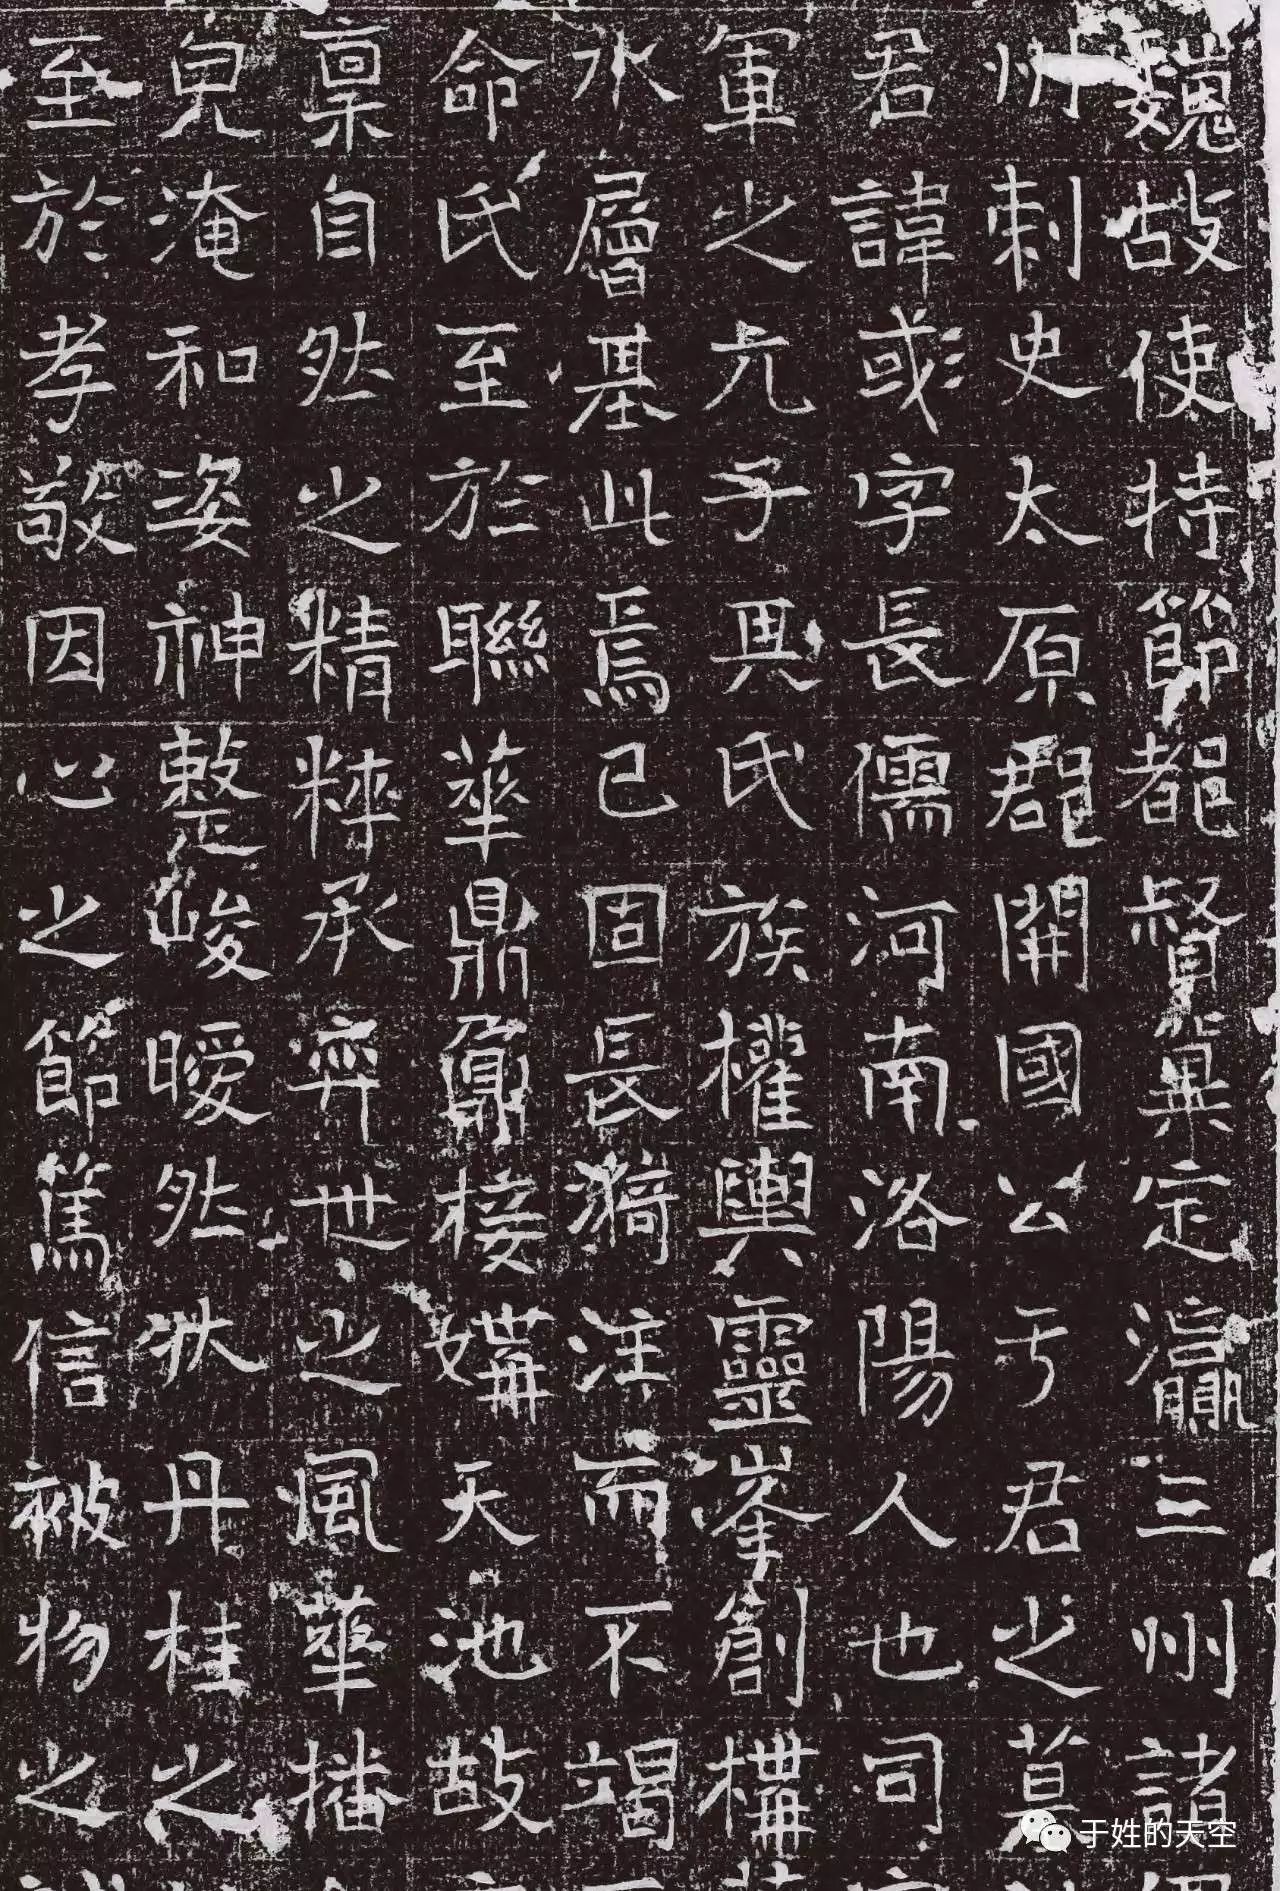 魏故使持節都督冀定瀛三州諸
州刺史太原郡開國公于君之墓
君諱彧字長儒河南洛陽人也司
軍之元子其氏族權輿靈峯創構
水層基此焉已固長漪注而不竭
命氏至於聯華鼎鼐接媾天池故
稟自然之精粹承弈世之風華播
皃淹和姿神整峻曖然狀丹桂之
至於孝敬因心之節篤信被物之
于姓的天空